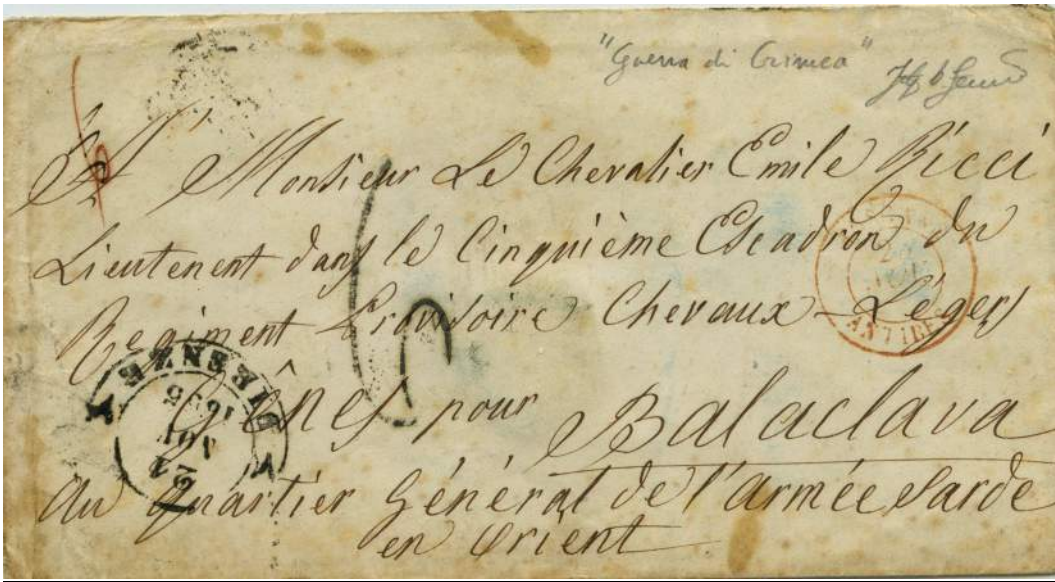 "Guerra di Crimea"
A Monsieur Le Chevalier Emile Ricci
Lieutenent dans le Cinquième Escadron du
Regiment Provisoire Chevaux-Légers
Gênes pour Balaclava
au Quartier Général de l'armée Sarde
en Orient
6
FIRENZE
24
1855
ANTIBES